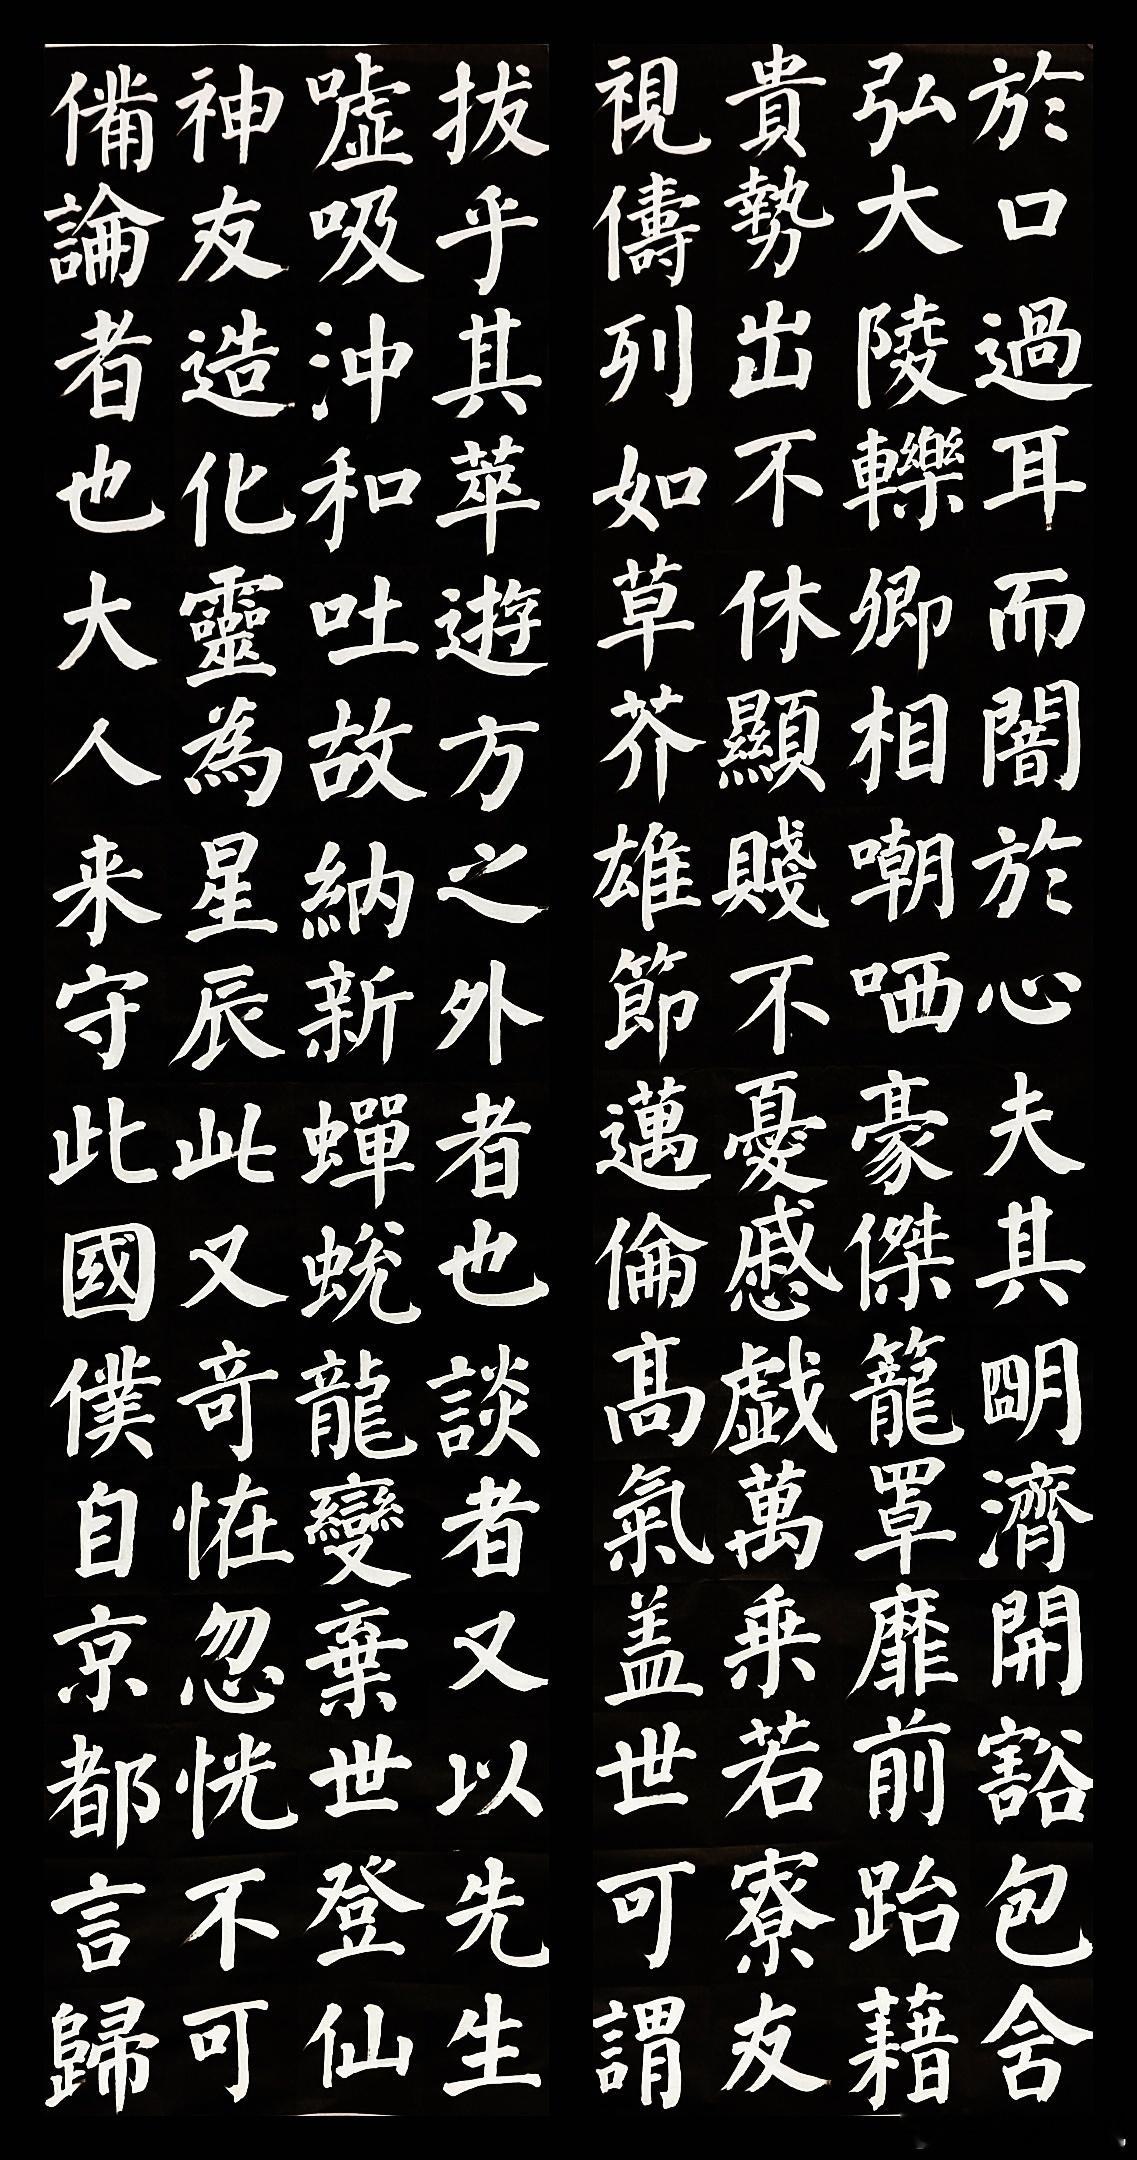 於口過耳而闇於心夫其明濟開豁包含
弘大陵轢卿相嘲哂豪傑籠罩靡前跆藉
貴勢出不休顯賤不憂慼戲萬乘若寮友
視儔列如草芥雄節邁倫高氣蓋世可謂
拔乎其萃遊方之外者也談者又以先生
噓吸沖和吐故納新蟬蛻龍變棄世登仙
神友造化靈為星辰此又奇怪忽恍不可
備論者也大人来守此國僕自京都言歸